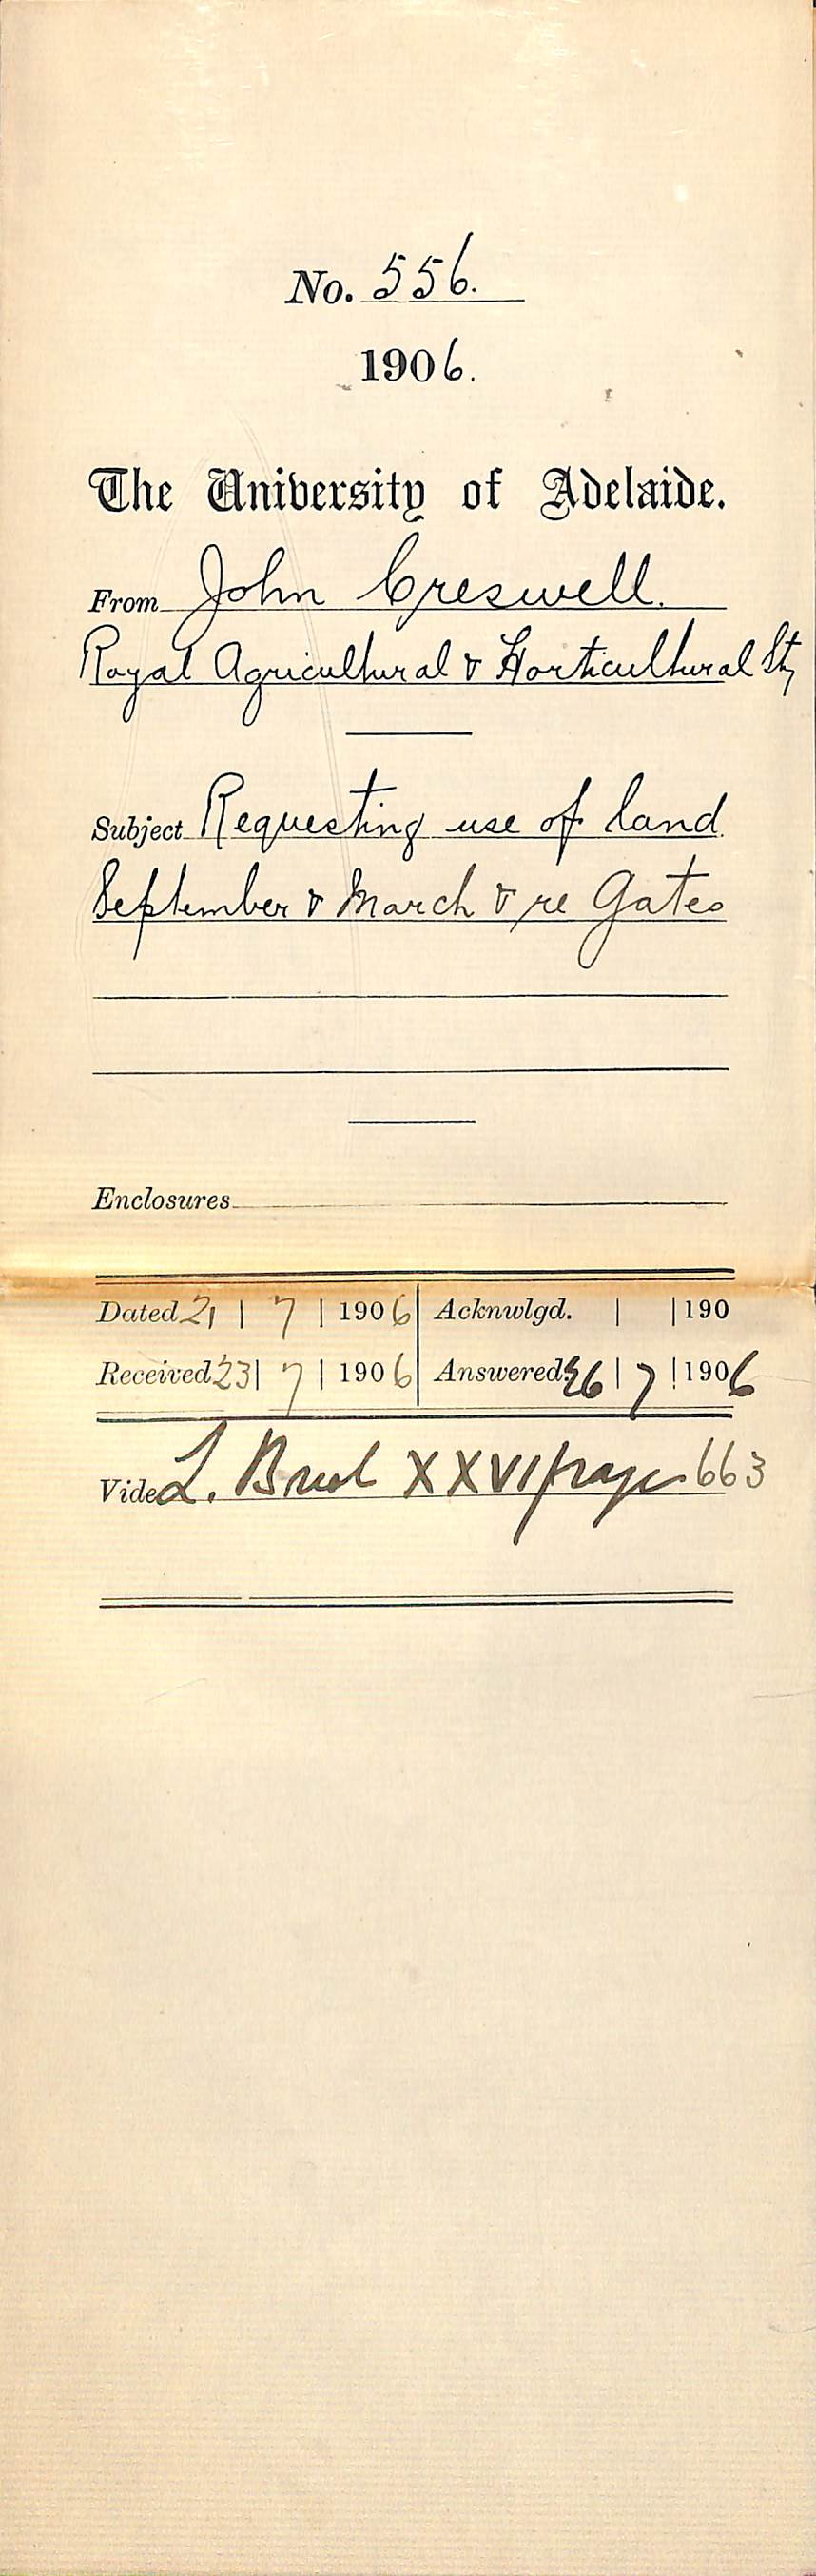 No. 556.
1906.
The University of Adelaide.
From John Creswell.
Royal Agricultural & Horticultural Sty
Subject Requesting use of land
September & March & re Gates
Enclosures
Dated 21 | 7 | 1906 Acknwlgd. | | 190
Received 23 | 7 | 1906 Answered 26 | 7 | 1906
Vide L. XXVI page 663